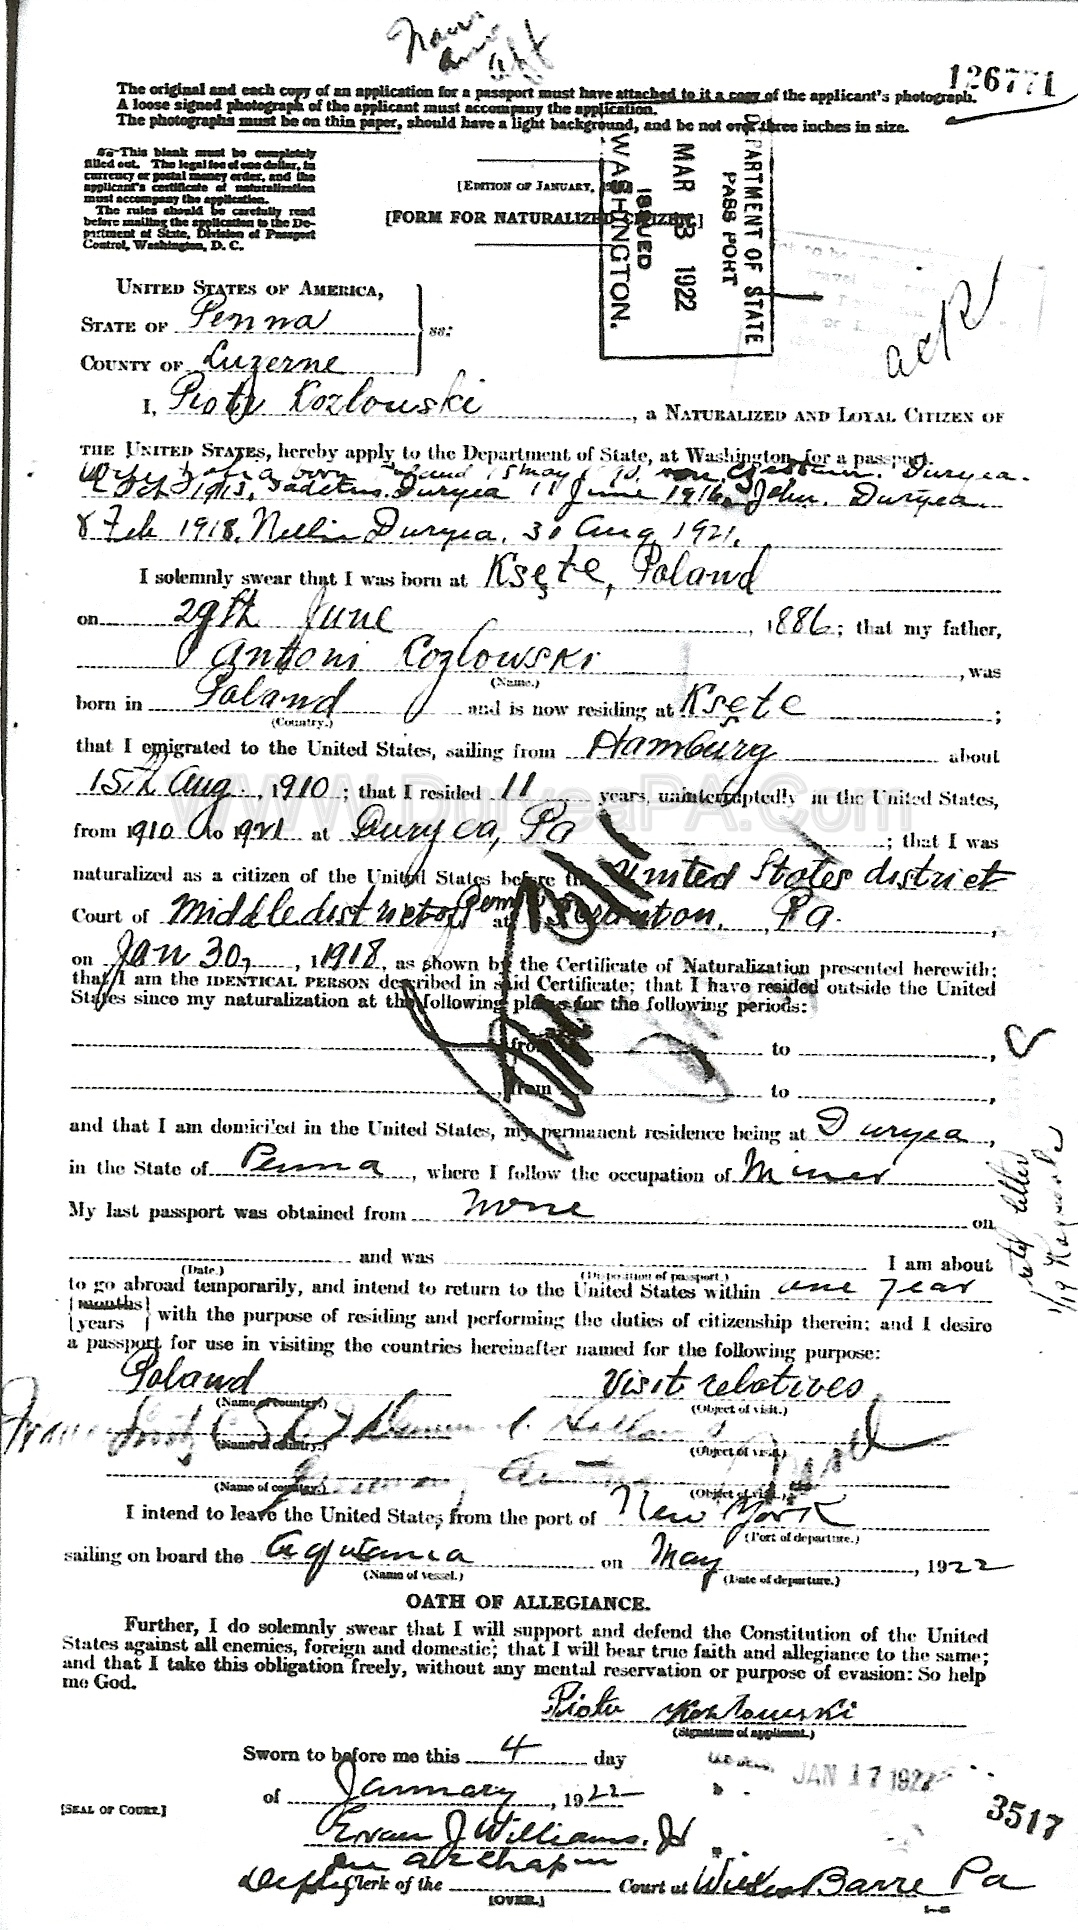 126771
The original and each copy of an application for a passport must have attached to it a copy of the applicant's photograph.
A loose signed photograph of the applicant must accompany the application.
The photographs must be on thin paper, should have a light background, and be not over three inches in size.
This blank must be completely
filled out. The legal fee of one dollar, in
currency or postal money order, and the
applicant's certificate of naturalization
must accompany the application.
The rules should be carefully read
before mailing the application to the De-
partment of State, Division of Passport
Control, Washington, D. C.
[EDITION OF JANUARY,
[FORM FOR NATURALIZED CITIZEN.]
DEPARTMENT OF STATE
PASSPORT
MAR 1922
ISSUED
WASHINGTON.
UNITED STATES OF AMERICA,
STATE OF Penna
COUNTY OF Luzerne
ss:
I, Piotr Kozlowski, a NATURALIZED AND LOYAL CITIZEN OF
THE UNITED STATES, hereby apply to the Department of State, at Washington, for a passport.
Wife born Poland 15 May Duryea.
Oct 1913. Duryea 11 June 1916. John. Duryea
8 Feb 1918. Nellie Duryea. 30 Aug 1921.
I solemnly swear that I was born at Ksęte, Poland
on 29th June, 1886; that my father,
Antoni Kozlowski, was
(Name.)
born in Poland and is now residing at Ksęte;
(Country.)
that I emigrated to the United States, sailing from Hamburg about
15th Aug., 1910; that I resided 11 years, uninterruptedly in the United States,
WWW.DuryeaPA.Com
from 1910 to 1921 at Duryea, Pa; that I was
naturalized as a citizen of the United States before the United States district
Court of Middle district of Penna at Scranton, Pa.,
on Jan 30, 1918, as shown by the Certificate of Naturalization presented herewith;
that I am the IDENTICAL PERSON described in said Certificate; that I have resided outside the United
States since my naturalization at the following places for the following periods:
from to ,
from to ,
and that I am domiciled in the United States, my permanent residence being at Duryea,
in the State of Penna, where I follow the occupation of Miner
My last passport was obtained from None on
and was I am about
(Date.) (Disposition of passport.)
to go abroad temporarily, and intend to return to the United States within one year
{months
years} with the purpose of residing and performing the duties of citizenship therein; and I desire
a passport for use in visiting the countries hereinafter named for the following purpose:
Poland Visit relatives
(Name of country.) (Object of visit.)
(Name of country.) (Object of visit.)
(Name of country.) (Object of visit.)
I intend to leave the United States from the port of New York
(Port of departure.)
sailing on board the Aquitania on May, 1922
(Name of vessel.) (Date of departure.)
OATH OF ALLEGIANCE.
Further, I do solemnly swear that I will support and defend the Constitution of the United
States against all enemies, foreign and domestic; that I will bear true faith and allegiance to the same;
and that I take this obligation freely, without any mental reservation or purpose of evasion: So help
me God.
Piotr Kozlowski
(Signature of applicant.)
Sworn to before me this 4 day
of January, 1922
JAN 17 1922
3517
[SEAL OF COURT.]
Evan J Williams.
Deputy Clerk of the Court at Wilkes Barre Pa
[OVER.]